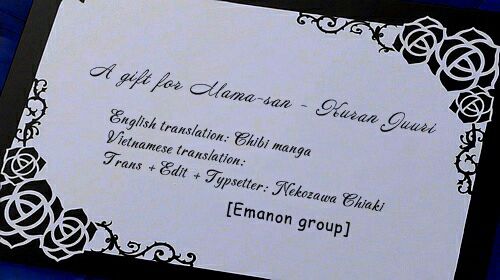 A gift for Mama-san - Kuran Juuri
English translation: Chibi manga
Vietnamese translation:
Trans + Edit + Typsetter: Nekozawa Chiaki
[Emanon group]